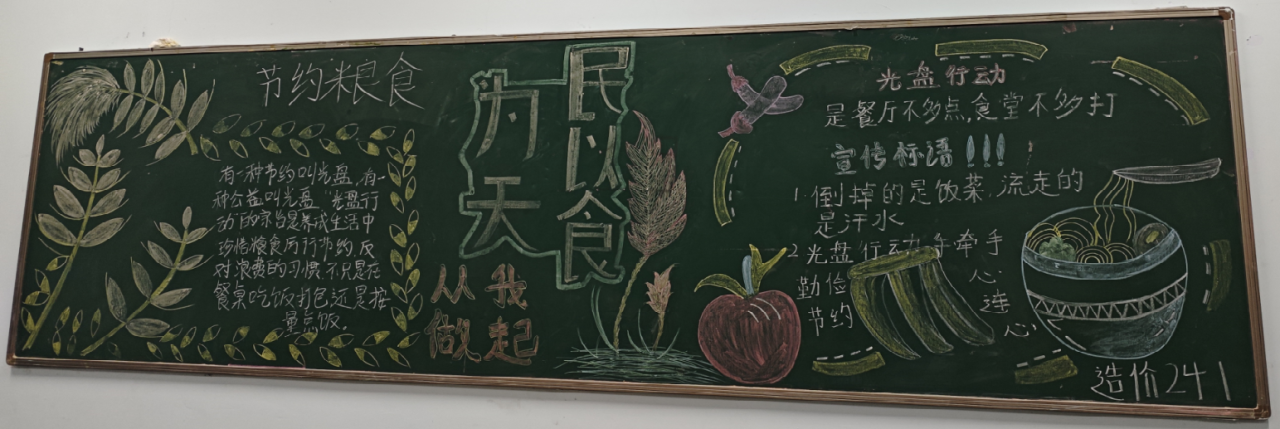 节约粮食
有一种节约叫光盘,有一
种公益叫光盘"光盘行
动"的宗旨是养成生活中
珍惜粮食厉行节约反
对浪费的习惯不只是在
餐桌吃饭打包还是按
量点饭。
民以食
为天
从我
做起
光盘行动
是餐厅不多点,食堂不多打
宣传标语!!!
1.倒掉的是饭菜,流走的
是汗水
2.光盘行动,手牵手
勤俭
节约
心
连
心
造价241